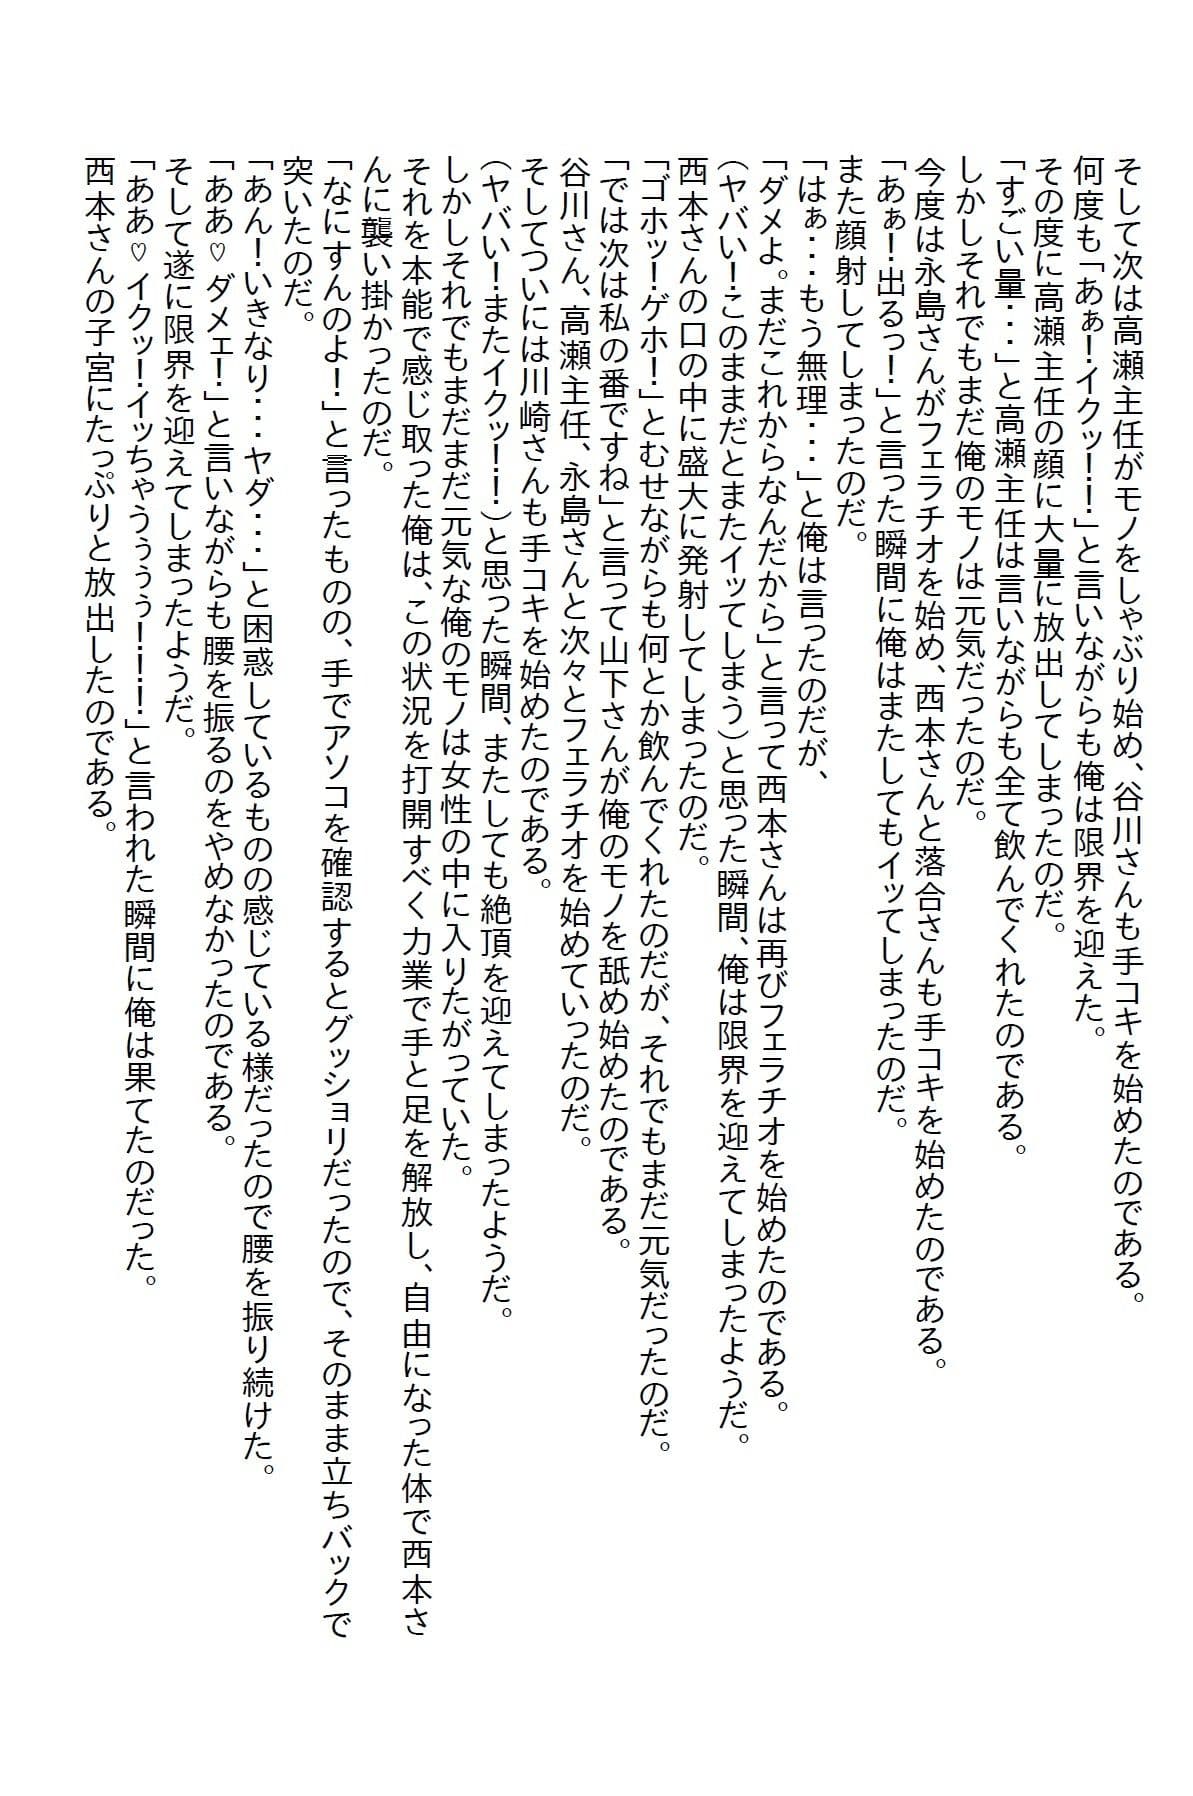 そして次は高瀬主任がモノをしゃぶり始め、谷川さんも手コキを始めたのである。
何度も「あぁ！イクッ！！」と言いながらも俺は限界を迎えた。
その度に高瀬主任の顔に大量に放出してしまったのだ。
「すごい量・・・」と高瀬主任は言いながらも全て飲んでくれたのである。
しかしそれでもまだ俺のモノは元気だったのだ。
今度は永島さんがフェラチオを始め、西本さんと落合さんも手コキを始めたのである。
「あぁ！出るっ！」と言った瞬間に俺はまたしてもイッてしまったのだ。
また顔射してしまったのだ。
「はぁ・・・もう無理・・・」と俺は言ったのだが、
「ダメよ。まだこれからなんだから」と言って西本さんは再びフェラチオを始めたのである。
（ヤバい！このままだとまたイッてしまう）と思った瞬間、俺は限界を迎えてしまったようだ。
西本さんの口の中に盛大に発射してしまったのだ。
「ゴホッ！ゲホ！」とむせながらも何とか飲んでくれたのだが、それでもまだ元気だったのだ。
「では次は私の番ですね」と言って山下さんが俺のモノを舐め始めたのである。
谷川さん、高瀬主任、永島さんと次々とフェラチオを始めていったのだ。
そしてついには川崎さんも手コキを始めたのである。
（ヤバい！またイクッ！！）と思った瞬間、またしても絶頂を迎えてしまったようだ。
しかしそれでもまだまだ元気な俺のモノは女性の中に入りたがっていた。
それを本能で感じ取った俺は、この状況を打開すべく力業で手と足を解放し、自由になった体で西本さ
んに襲い掛かったのだ。
「なにすんのよ！」と言ったものの、手でアソコを確認するとグッショリだったので、そのまま立ちバックで
突いたのだ。
「あん！いきなり・・・ヤダ・・・」と困惑しているものの感じている様だったので腰を振り続けた。
「ああ♡ダメェ！」と言いながらも腰を振るのをやめなかったのである。
そして遂に限界を迎えてしまったようだ。
「ああ♡イクッ！イッちゃうぅぅぅ！！！」と言われた瞬間に俺は果てたのだった。
西本さんの子宮にたっぷりと放出したのである。